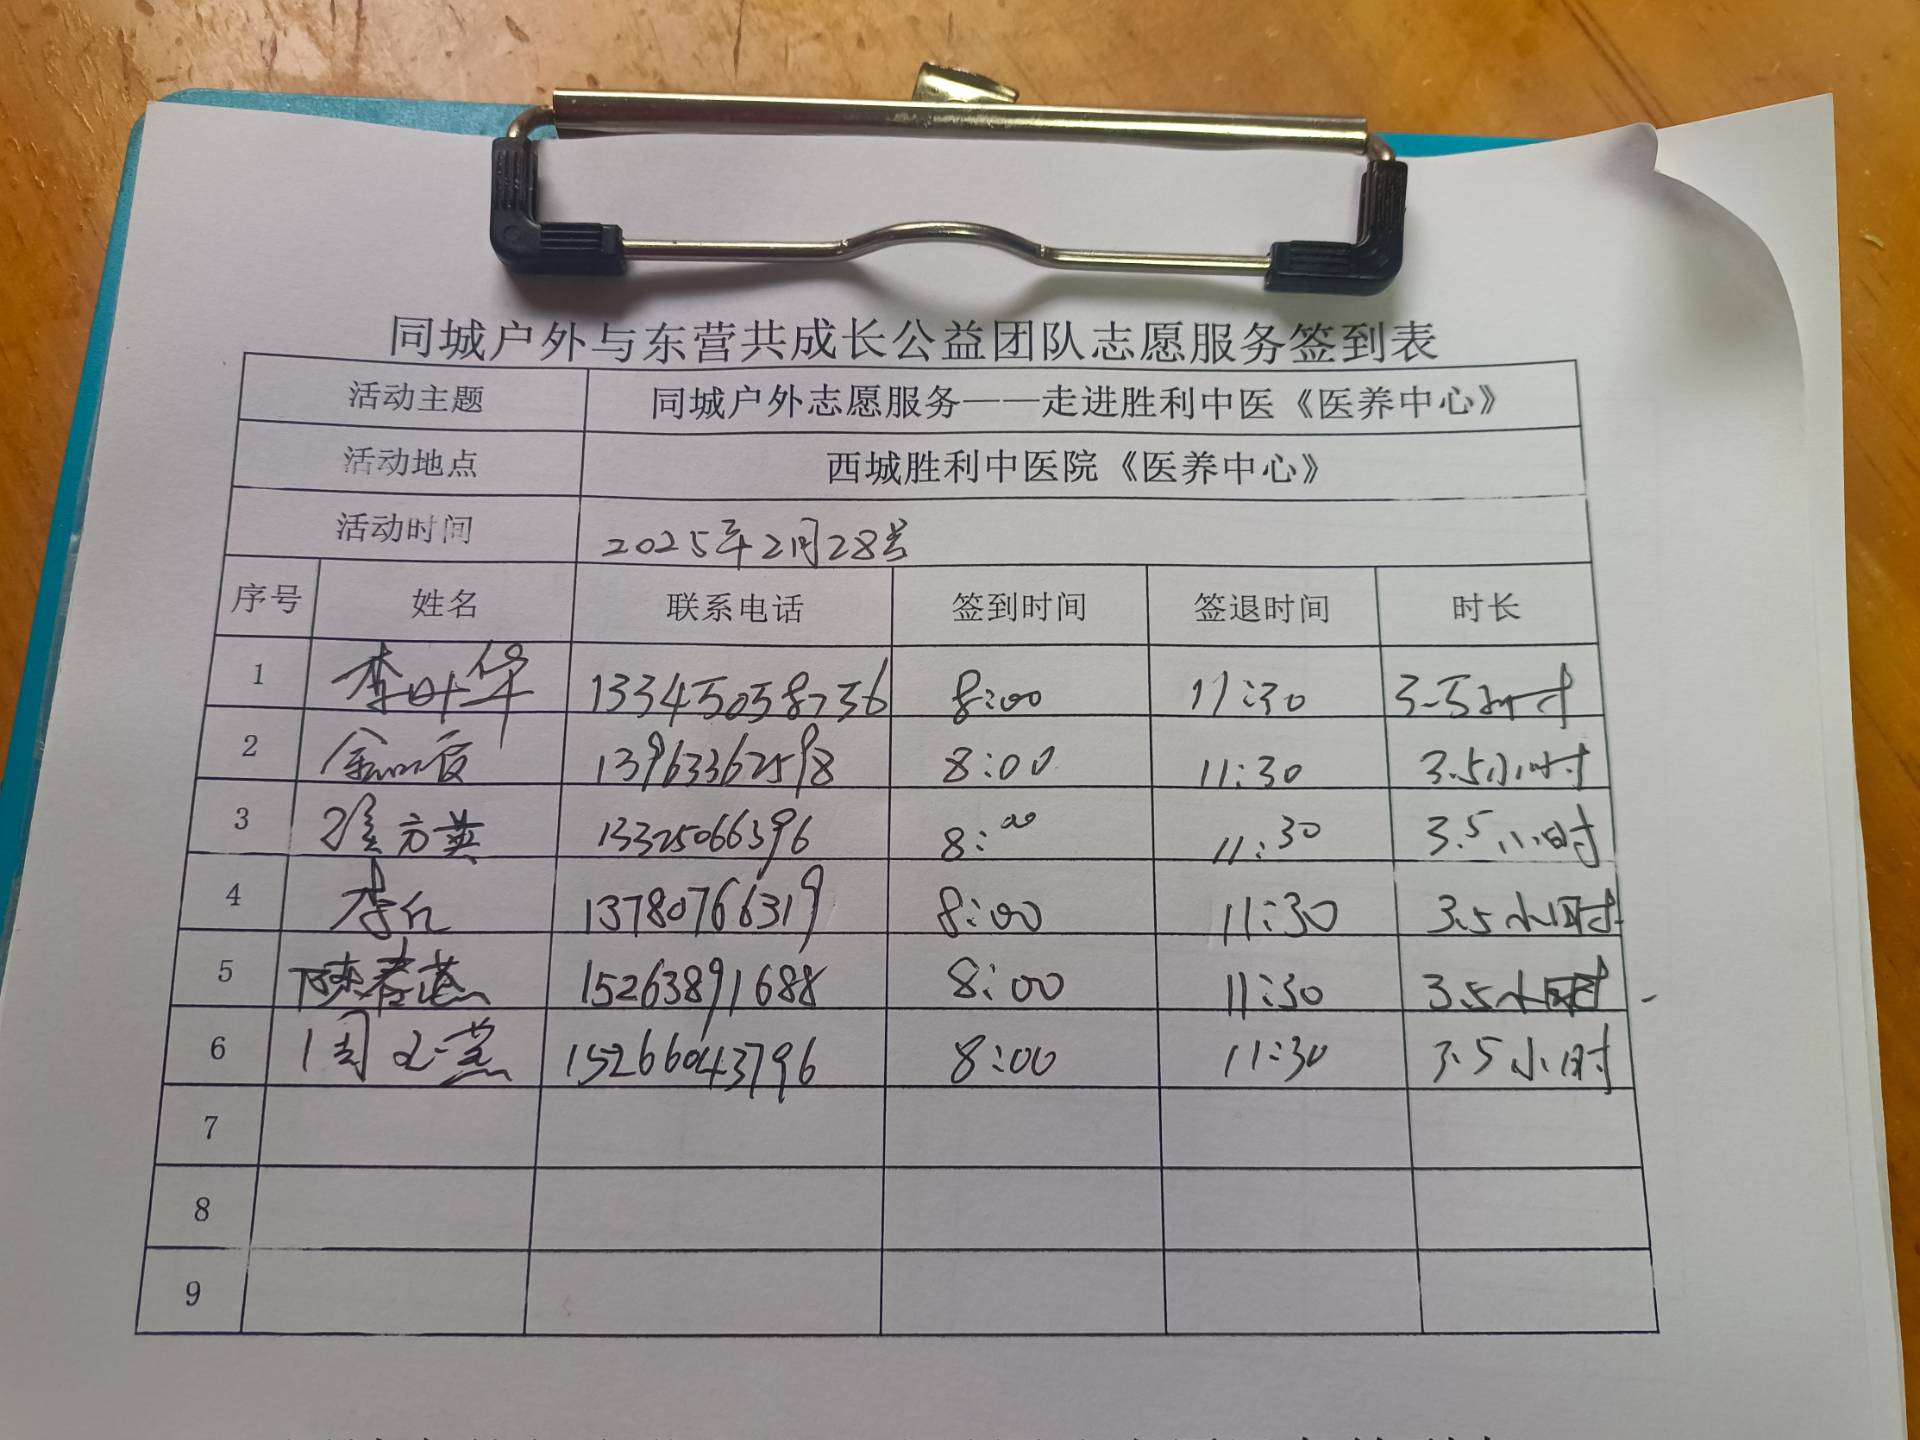 同城户外与东营共成长公益团队志愿服务签到表
活动主题 同城户外志愿服务——走进胜利中医《医养中心》
活动地点 西城胜利中医院《医养中心》
活动时间 2025年2月28号
序号 姓名 联系电话 签到时间 签退时间 时长
1 李叶华 13345058736 8:00 11:30 3.5小时
2 13963362598 8:00 11:30 3.5小时
3 方英 13325066396 8:00 11:30 3.5小时
4 李红 13780766319 8:00 11:30 3.5小时
5 陈春燕 15263891688 8:00 11:30 3.5小时
6 周文燕 15266043796 8:00 11:30 3.5小时
7
8
9